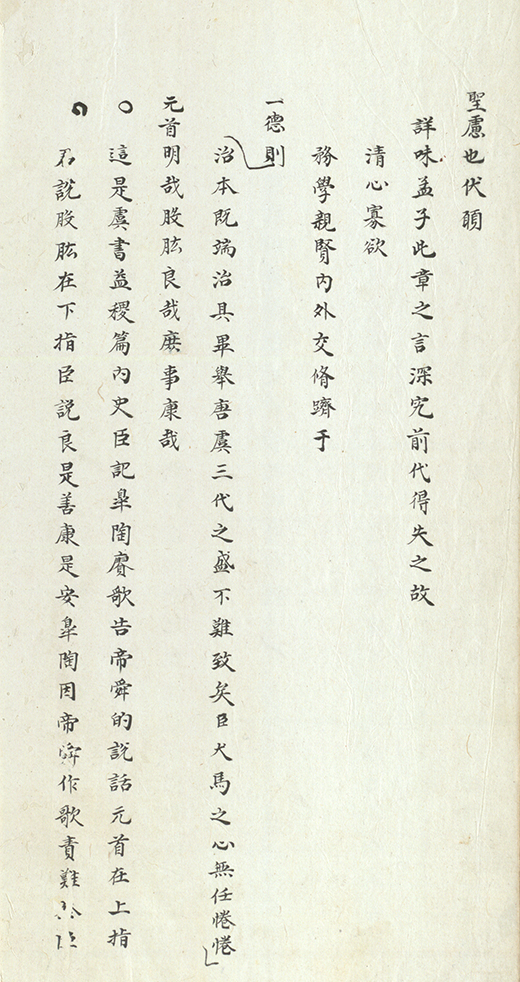 聖慮也伏願
詳味孟子此章之言深究前代得失之故
清心寡欲
務學親賢内外交脩躋于
一德則
治本既端治具畢舉唐虞三代之盛不難致矣臣犬馬之心無任惓惓
元首明哉股肱良哉庶事康哉
這是虞書益稷篇内史臣記臯陶賡歌告帝舜的說話元首在上指
君說股肱在下指臣說良是善康是安臯陶因帝舜作歌責難